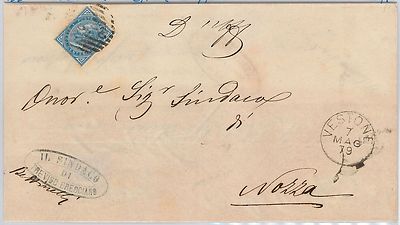 Onor.e Sig.r Sindaco
di
Nozza
VESTONE
7
MAG
79
IL SINDACO
DI
TREVISO BRESCIANO